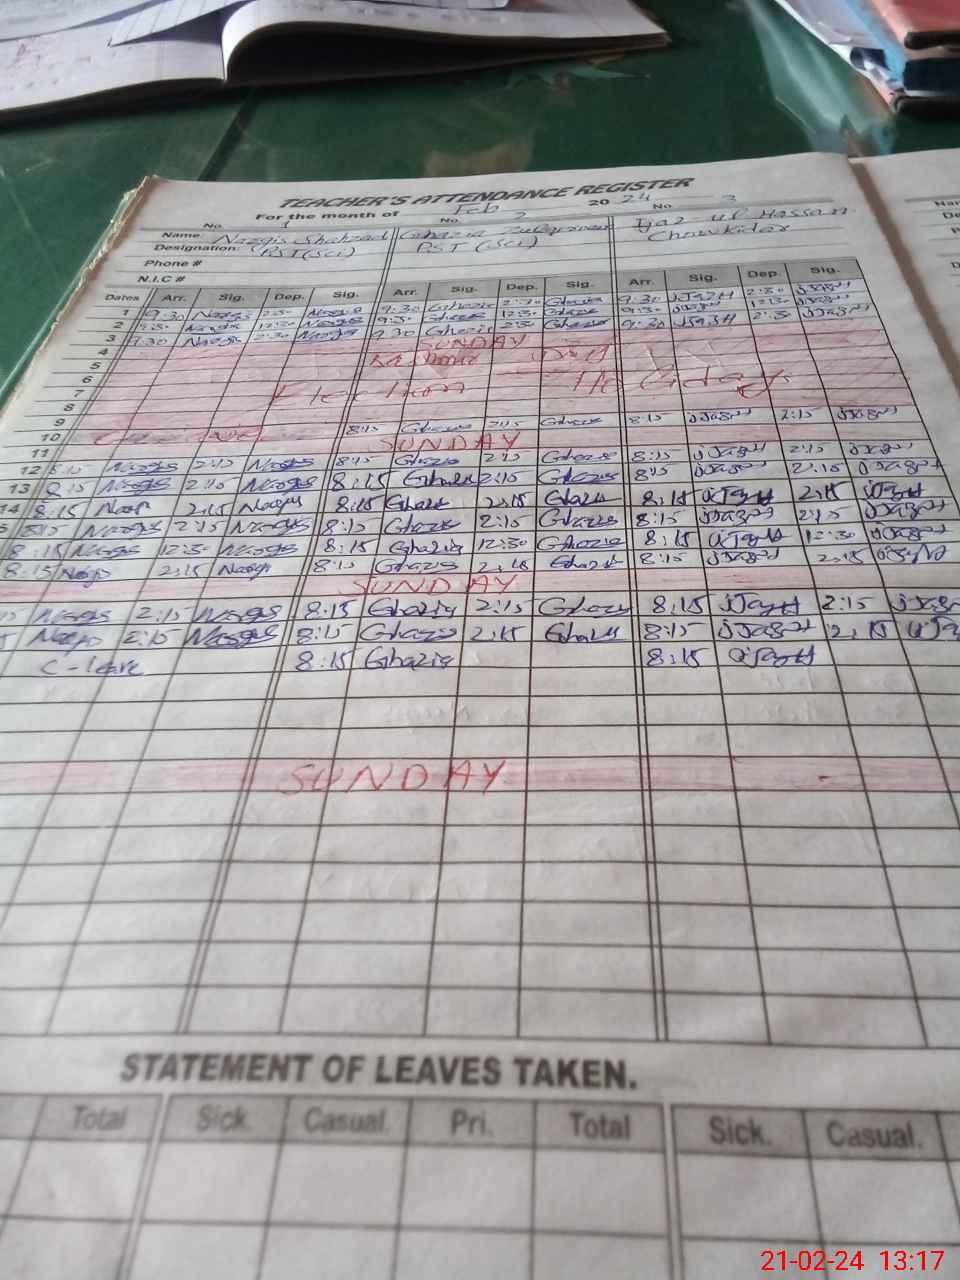 TEACHER'S ATTENDANCE REGISTER
For the month of Feb 2024
No. 1 No. 2 No. 3
Name: Nargis Shahzad Ghazia Zulqarnan Ijaz-ul-Hassan
Designation: PST(Sci) PST (Sci) Chowkidar
Phone #
N.I.C #
Dates Arr. Sig. Dep. Sig. Arr. Sig. Dep. Sig. Arr. Sig. Dep. Sig.
1 9:30 Nargis 2:30 Nargis 9:30 Ghazia 2:30 Ghazia 9:30 IJazH 2:30 IJazH
2 9:30 Nargis 12:30 Nargis 9:30 Ghazia 12:30 Ghazia 9:30 IJazH 12:30 IJazH
3 9:30 Nargis 2:30 Nargis 9:30 Ghazia 2:30 Ghazia 9:30 IJazH 2:30 IJazH
4 SUNDAY
5 Kashmir Day
6
7 Election Holidays
8
9
10 8:15 Ghazia 2:15 Ghazia 8:15 IJazH 2:15 IJazH
11 SUNDAY
12 8:15 Nargis 2:15 Nargis 8:15 Ghazia 2:15 Ghazia 8:15 IJazH 2:15 IJazH
13 8:15 Nargis 2:15 Nargis 8:15 Ghazia 2:15 Ghazia 8:15 IJazH 2:15 IJazH
14 8:15 Nargis 2:15 Nargis 8:15 Ghazia 2:15 Ghazia 8:15 IJazH 2:15 IJazH
8:15 Nargis 2:15 Nargis 8:15 Ghazia 2:15 Ghazia 8:15 IJazH 2:15 IJazH
8:15 Nargis 12:30 Nargis 8:15 Ghazia 12:30 Ghazia 8:15 IJazH 12:30 IJazH
8:15 Nargis 2:15 Nargis 8:15 Ghazia 2:15 Ghazia 8:15 IJazH 2:15 IJazH
SUNDAY
Nargis 2:15 Nargis 8:15 Ghazia 2:15 Ghazia 8:15 IJazH 2:15
Nargis 2:15 Nargis 8:15 Ghazia 2:15 Ghazia 8:15 IJazH 2:15
C-leave 8:15 Ghazia 8:15 IJazH
SUNDAY
STATEMENT OF LEAVES TAKEN.
Total Sick. Casual. Pri. Total Sick. Casual.
21-02-24 13:17